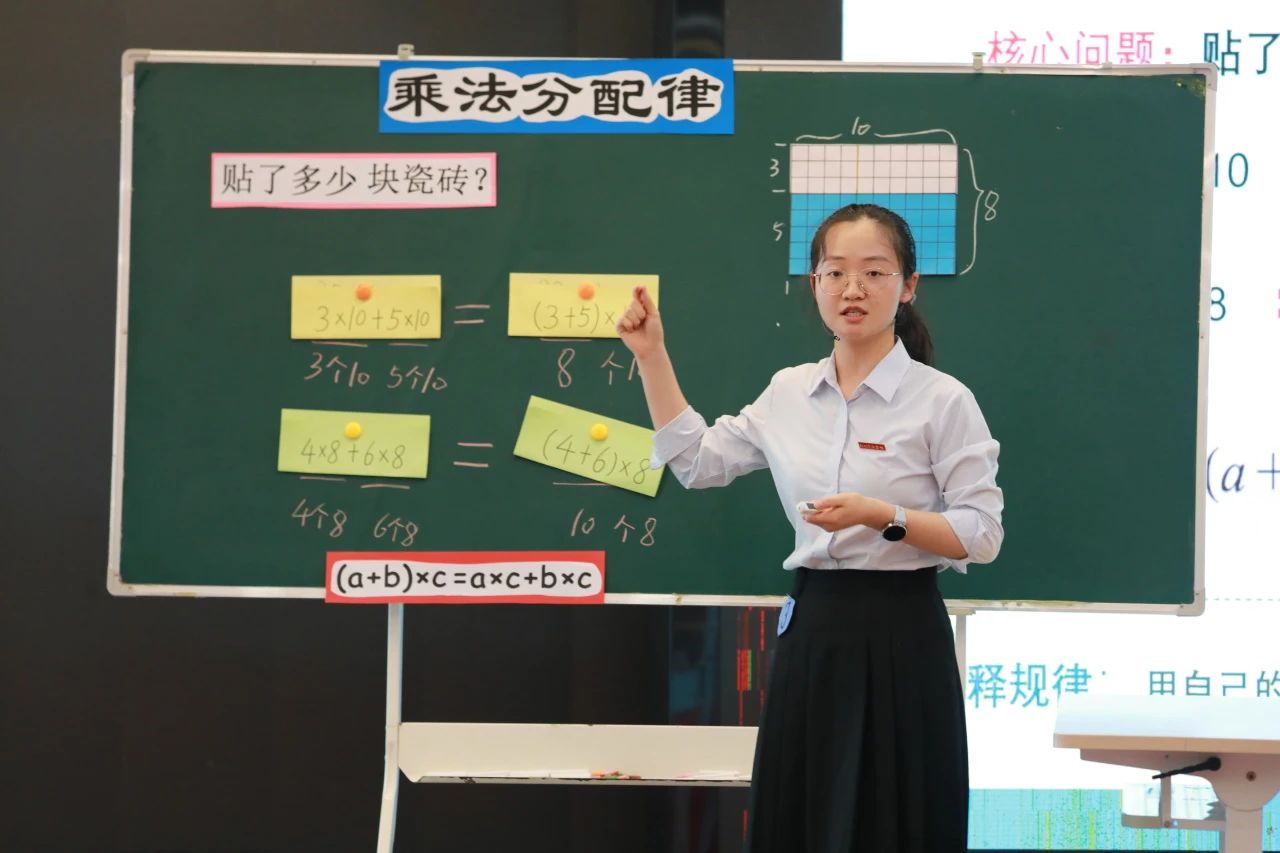 乘法分配律
核心问题：贴了
贴了多少块瓷砖？
10
3
8
5
10
3×10+5×10 = (3+5)×
3个10 5个10 8 个1
8
4×8+6×8 = (4+6)×8
(a+
4个8 6个8 10 个8
(a+b)×c=a×c+b×c
释规律： 用自己的